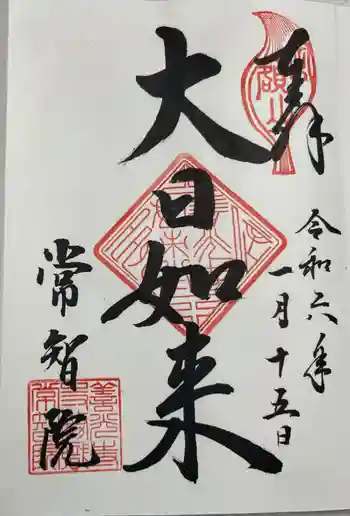 奉拝
令和六年
一月十五日
大日如来
常智院
善光寺